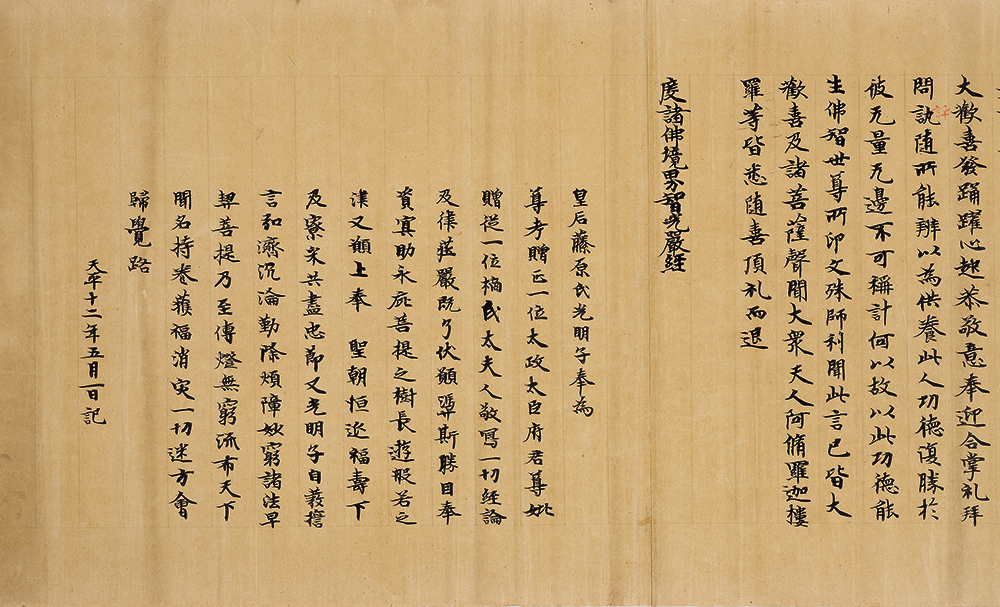 大歡喜發踊躍心起恭敬意奉迎合掌礼拜
問訊随所能辦以為供養此人功徳復勝於
彼无量无邊不可稱計何以故以此功徳能
生佛智世尊所印文殊師利聞此言已皆大
歡喜及諸菩薩聲聞大衆天人阿脩羅迦樓
羅等皆悉随喜頂礼而退
度諸佛境界智光嚴經
皇后藤原氏光明子奉為
尊考贈正一位太政太臣府君尊妣
贈従一位橘氏太夫人敬寫一切経論
及律荘嚴既了伏願憑斯勝因奉
資冥助永庇菩提之樹長遊般若之
津又願上奉 聖朝恒延福壽下
及寮采共盡忠節又光明子自發誓
言弘濟沉淪勤除煩障妙窮諸法早
契菩提乃至傳燈無窮流布天下
聞名持巻獲福消灾一切迷方會
歸覺路
天平十二年五月一日記